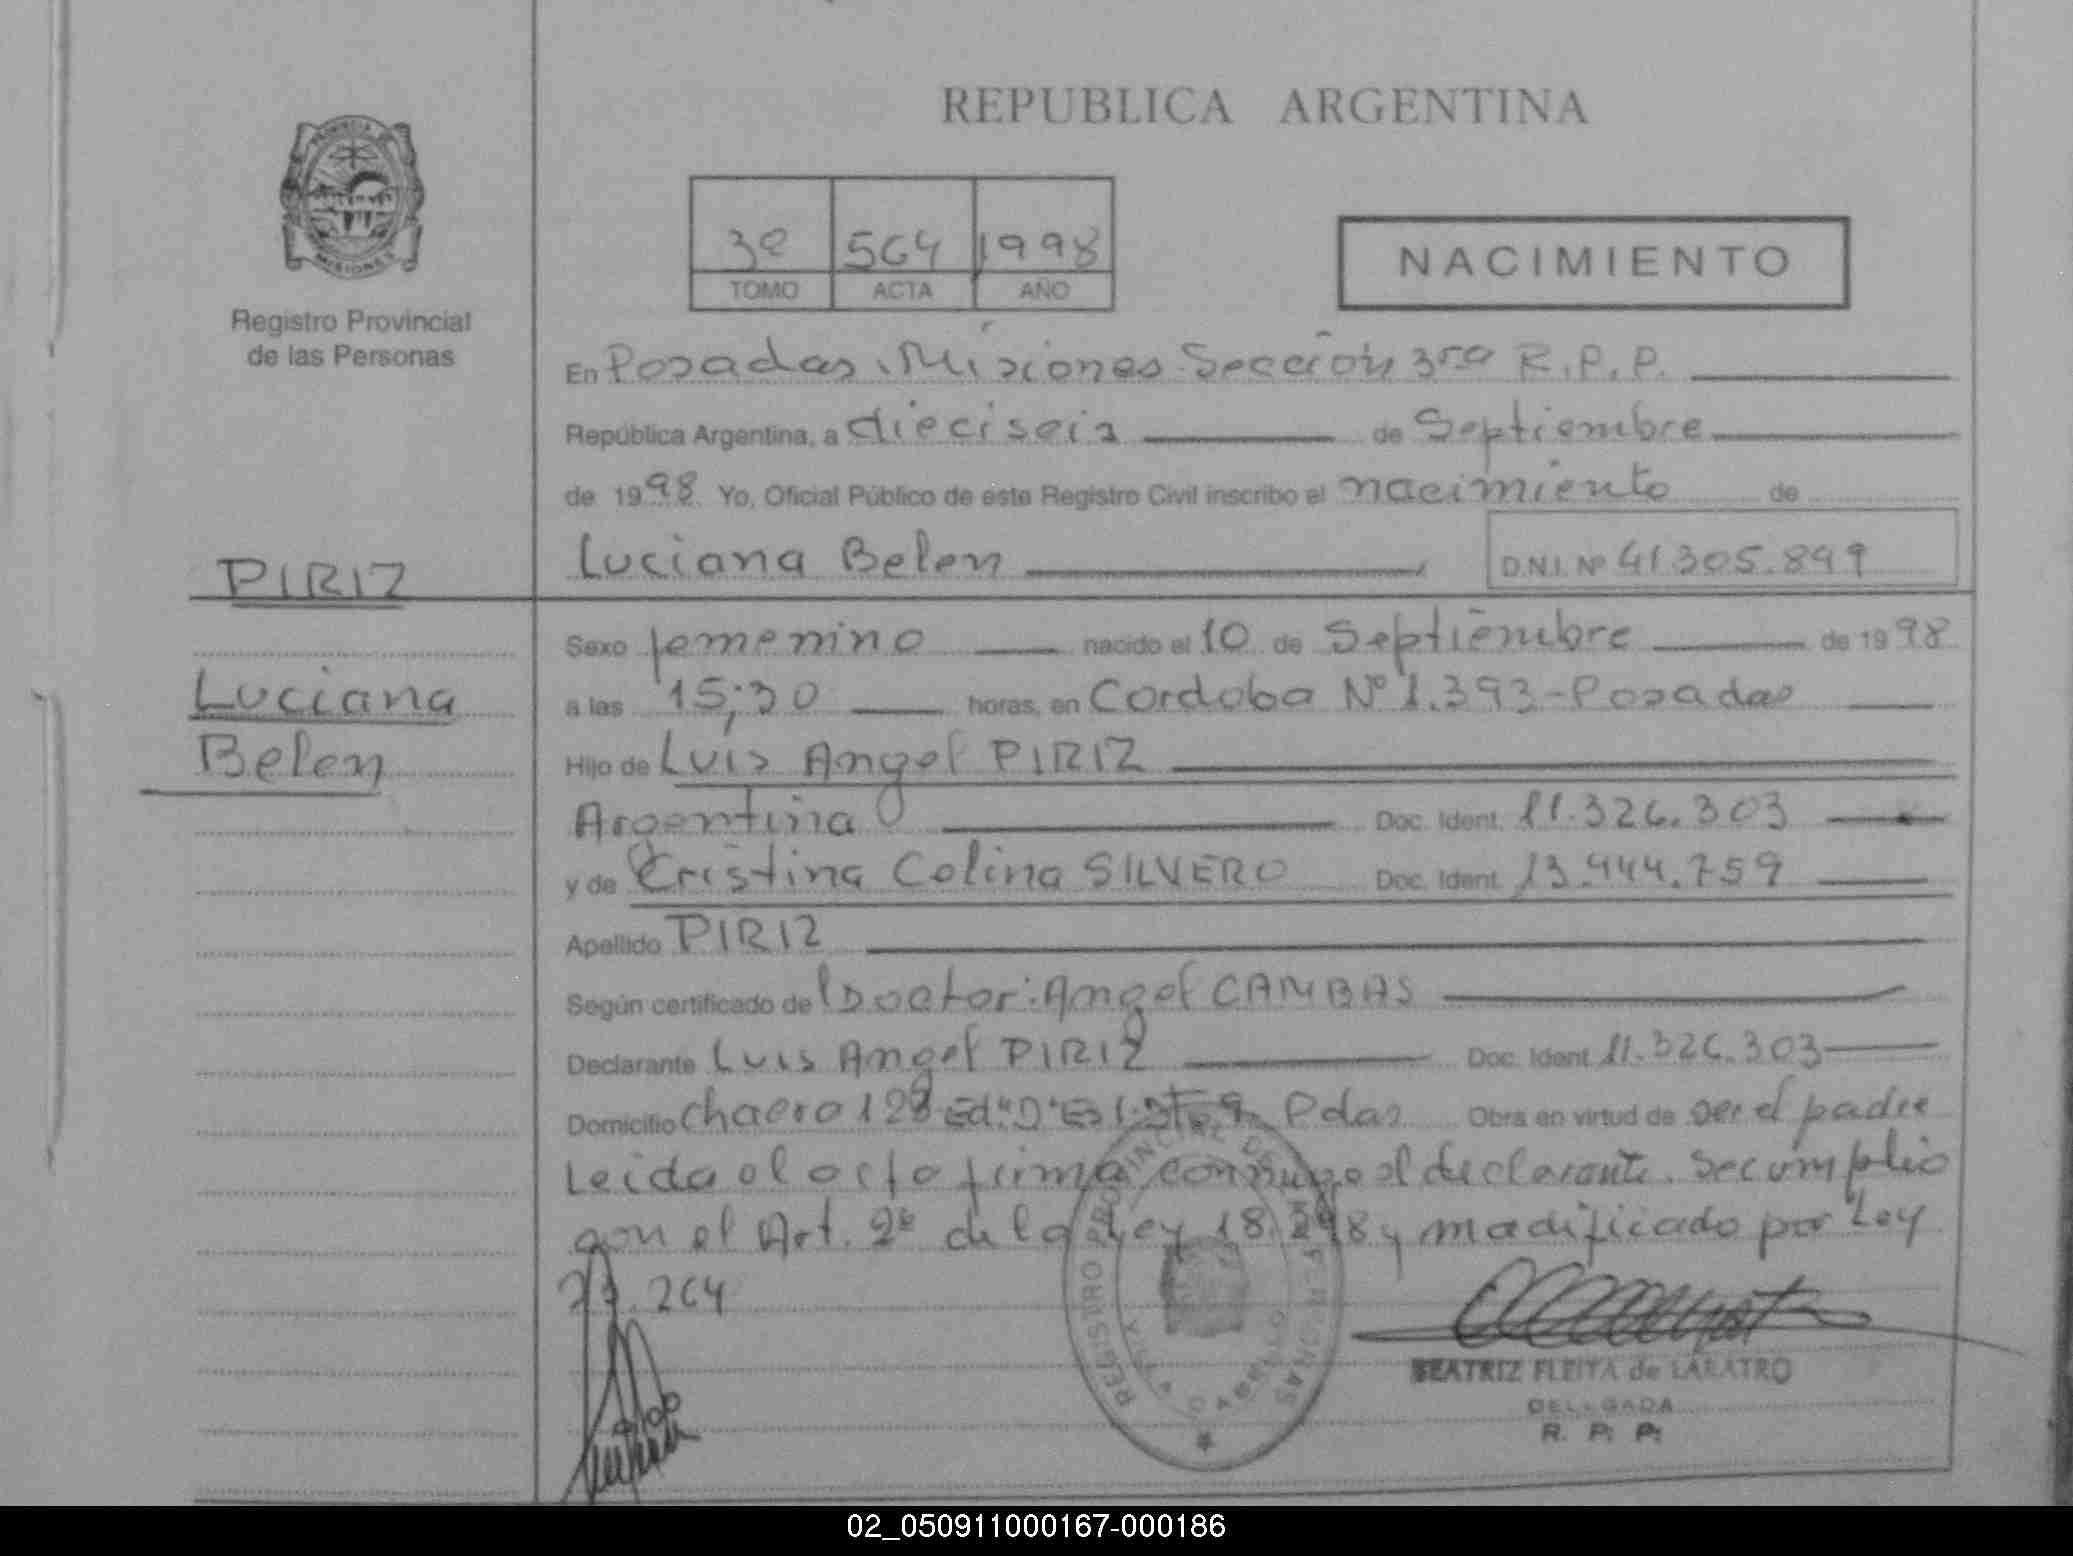 REPUBLICA ARGENTINA
PROVINCIA DE
MISIONES
Registro Provincial
de las Personas
3º 564 1998
TOMO ACTA AÑO
NACIMIENTO
En Posadas, Misiones Sección 3ra R.P.P.
República Argentina, a dieciseis de Septiembre
de 1998. Yo, Oficial Público de este Registro Civil inscribo el nacimiento de
Luciana Belen D.N.I. Nº 41.305.899
PIRIZ
Luciana
Belen
Sexo femenino nacido el 10 de Septiembre de 1998
a las 15;30 horas, en Cordoba Nº 1.393-Posadas
Hijo de Luis Angel PIRIZ
Argentina Doc. Ident. 11.326.303
y de Cristina Celina SILVERO Doc. Ident. 13.944.759
Apellido PIRIZ
Según certificado de Doctor: Angel CAMBAS
Declarante Luis Angel PIRIZ Doc. Ident. 11.326.303
Domicilio chacra Pdas Obra en virtud de ser el padre
Leida el acta firma conmigo el declarante. Se cumplio
con el Art. 2º de la Ley 18.248 y modificado por Ley
23.264
REGISTRO PROVINCIAL DE LAS PERSONAS
BEATRIZ FLEITA de LARATRO
DELEGADA
R. P. P.
02_050911000167-000186